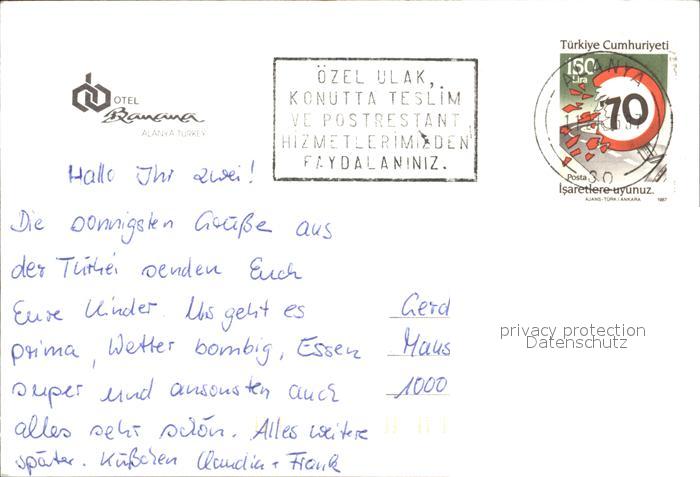 OTEL
Banana
ALANYA-TURKEY
ÖZEL ULAK,
KONUTTA TESLİM
VE POSTRESTANT
HİZMETLERİMİZDEN
FAYDALANINIZ.
Türkiye Cumhuriyeti
150
Lira
ALANYA
70
30
Posta
İşaretlere uyunuz.
AJANS-TÜRK / ANKARA 1987
Hallo Ihr zwei!
Die sonnigsten Grüße aus
der Türkei senden Euch
Eure Kinder. Uns geht es
prima, Wetter bombig, Essen
super und ansonsten auch
alles sehr schön. Alles weitere
später. Küßchen Claudia + Frank
Gerd
Maus
1000
privacy protection
Datenschutz